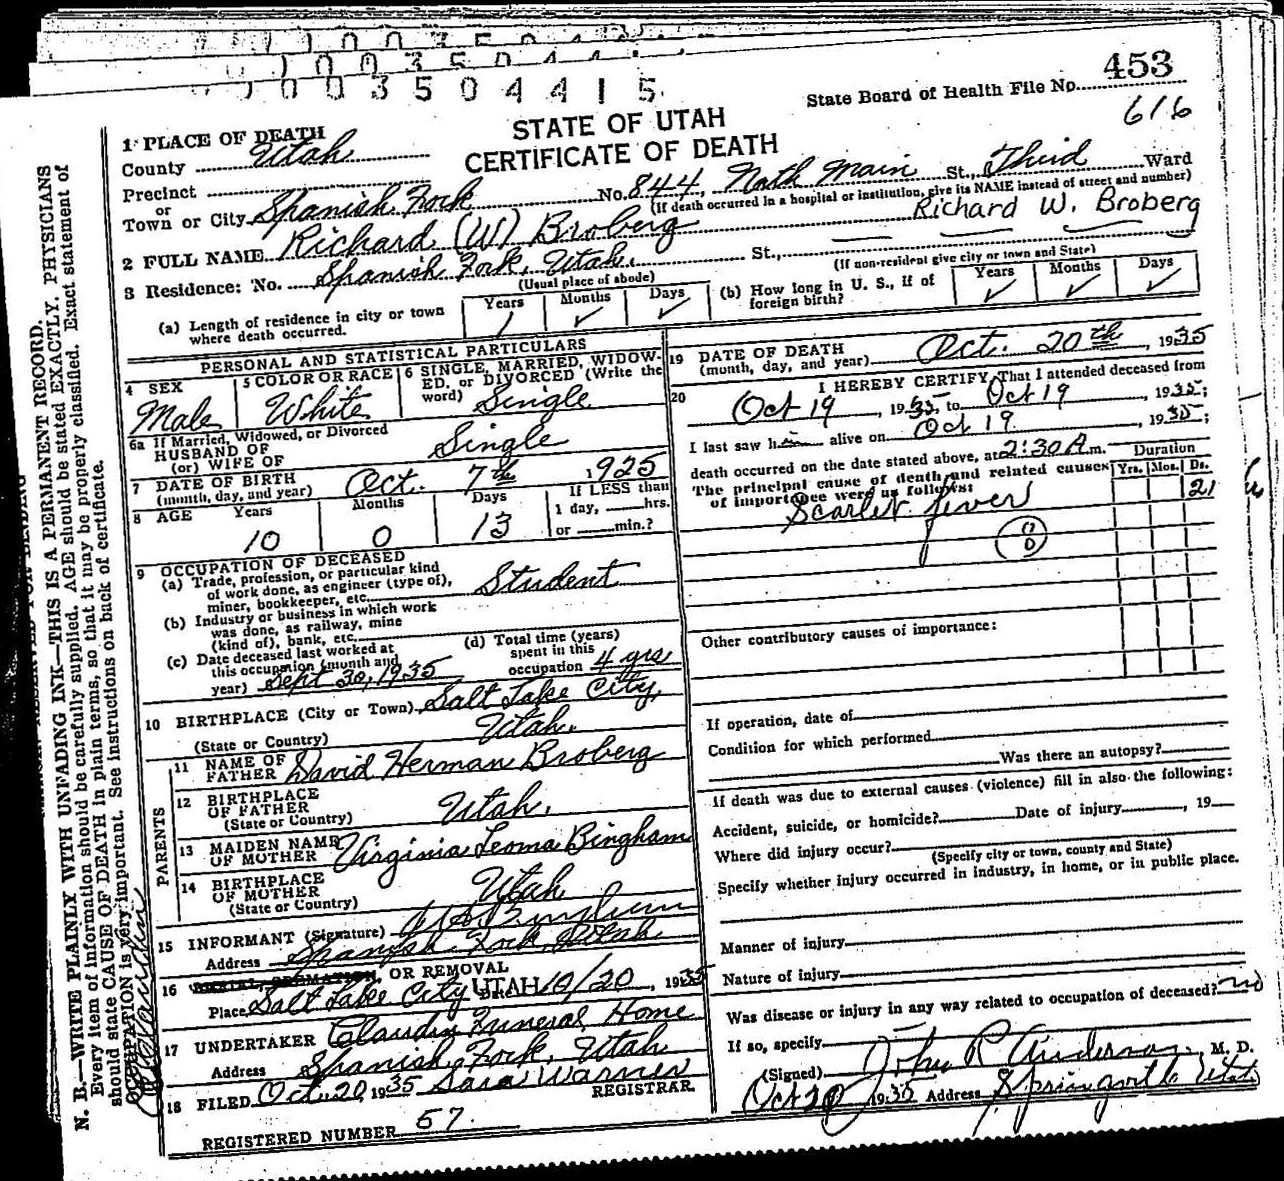 0003504415
State Board of Health File No. 453
616
STATE OF UTAH
CERTIFICATE OF DEATH
1 PLACE OF DEATH
County Utah
Precinct
or
Town or City Spanish Fork No. 844, North Main St., Third Ward
(If death occurred in a hospital or institution, give its NAME instead of street and number)
2 FULL NAME Richard (W) Broberg Richard W. Broberg
3 Residence: No. Spanish Fork, Utah. St.,
(Usual place of abode) (If non-resident give city or town and State)
(a) Length of residence in city or town where death occurred. Years 1 Months ✓ Days ✓
(b) How long in U. S., if of foreign birth? Years ✓ Months ✓ Days ✓
PERSONAL AND STATISTICAL PARTICULARS
4 SEX Male
5 COLOR OR RACE White
6 SINGLE, MARRIED, WIDOWED, or DIVORCED (Write the word) Single
6a If Married, Widowed, or Divorced
HUSBAND OF
(or) WIFE OF Single
7 DATE OF BIRTH
(month, day, and year) Oct. 7th 1925
8 AGE Years 10 Months 0 Days 13 If LESS than 1 day, hrs. or min.?
9 OCCUPATION OF DECEASED
(a) Trade, profession, or particular kind of work done, as engineer (type of), miner, bookkeeper, etc. Student
(b) Industry or business in which work was done, as railway, mine (kind of), bank, etc.
(c) Date deceased last worked at this occupation (month and year) Sept 30, 1935
(d) Total time (years) spent in this occupation 4 yrs
10 BIRTHPLACE (City or Town) Salt Lake City,
(State or Country) Utah.
PARENTS
11 NAME OF FATHER David Herman Broberg
12 BIRTHPLACE OF FATHER
(State or Country) Utah.
13 MAIDEN NAME OF MOTHER Virginia Leoma Bingham
14 BIRTHPLACE OF MOTHER
(State or Country) Utah
15 INFORMANT (Signature) Bingham
Address Spanish Fork, Utah
16 BURIAL, CREMATION, OR REMOVAL
Place Salt Lake City UTAH Date 10/20, 1935
17 UNDERTAKER Claudin Funeral Home
Address Spanish Fork, Utah
18 FILED Oct. 20, 1935 Sara Warner
REGISTRAR.
REGISTERED NUMBER 57.
19 DATE OF DEATH
(month, day, and year) Oct. 20th, 1935
20 I HEREBY CERTIFY, That I attended deceased from
Oct 19, 1935, to Oct 19, 1935;
I last saw him alive on Oct 19, 1935;
death occurred on the date stated above, at 2:30 A.m.
The principal cause of death and related causes of importance were as follows:
Duration
Yrs. Mos. Ds.
21
Scarlet fever
Other contributory causes of importance:
If operation, date of
Condition for which performed
Was there an autopsy?
If death was due to external causes (violence) fill in also the following:
Accident, suicide, or homicide? Date of injury, 19
Where did injury occur?
(Specify city or town, county and State)
Specify whether injury occurred in industry, in home, or in public place.
Manner of injury
Nature of injury
Was disease or injury in any way related to occupation of deceased? no
If so, specify
(Signed) John R Anderson, M. D.
Oct 20 1935 Address Springville Utah
N. B.—WRITE PLAINLY WITH UNFADING INK—THIS IS A PERMANENT RECORD.
Every item of information should be carefully supplied. AGE should be stated EXACTLY. PHYSICIANS
should state CAUSE OF DEATH in plain terms, so that it may be properly classified. Exact statement of
OCCUPATION is very important. See instructions on back of certificate.